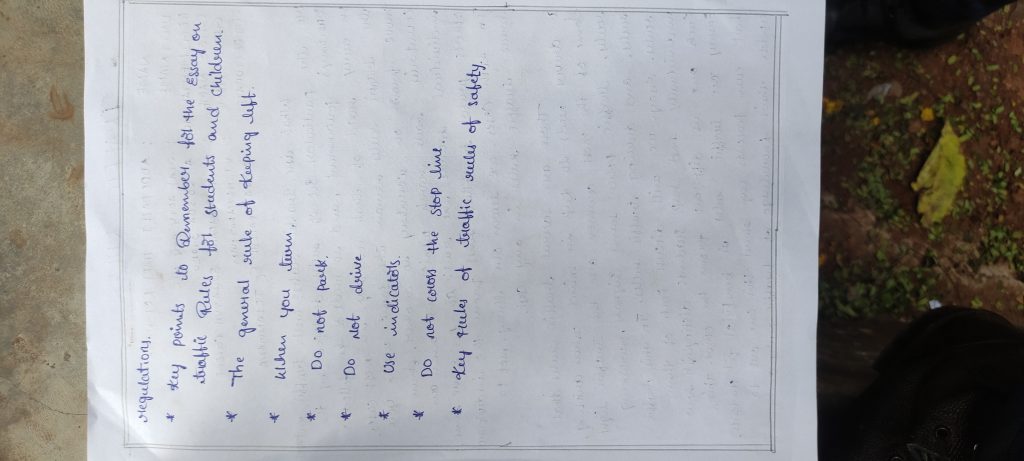 regulations.
* Key points to Remember for the Essay on
traffic Rules for students and Children.
* The general rule of Keeping left.
* When you turn.
* Do not park
* Do Not drive
* Use indicators
* Do not cross the stop line.
* Key Rules of traffic rules of safety.